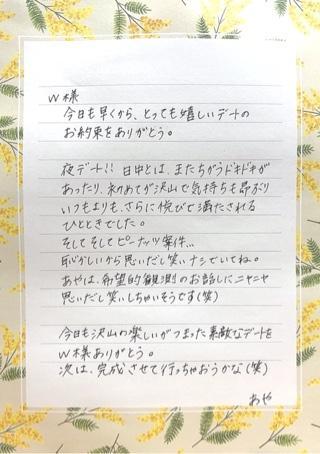 W様
今日も早くから、とっても嬉しいデートの
お約束をありがとう。
夜デート!! 日中とは、またちがうドキドキが
あったり、初めてが沢山で気持ちも昂ぶり
いつもよりも、さらに悦びで満たされる
ひとときでした。
そして そして ピーナッツ案件...
恥かしいから思いだし笑いナシでいてね。
あやは、希望的観測のお話しにニヤニヤ
思いだし笑いしちゃいそうです(笑)
今日も沢山の楽しいがつまった素敵なデートを
W様ありがとう。
次は、完成させて行っちゃおうかな(笑)
あや